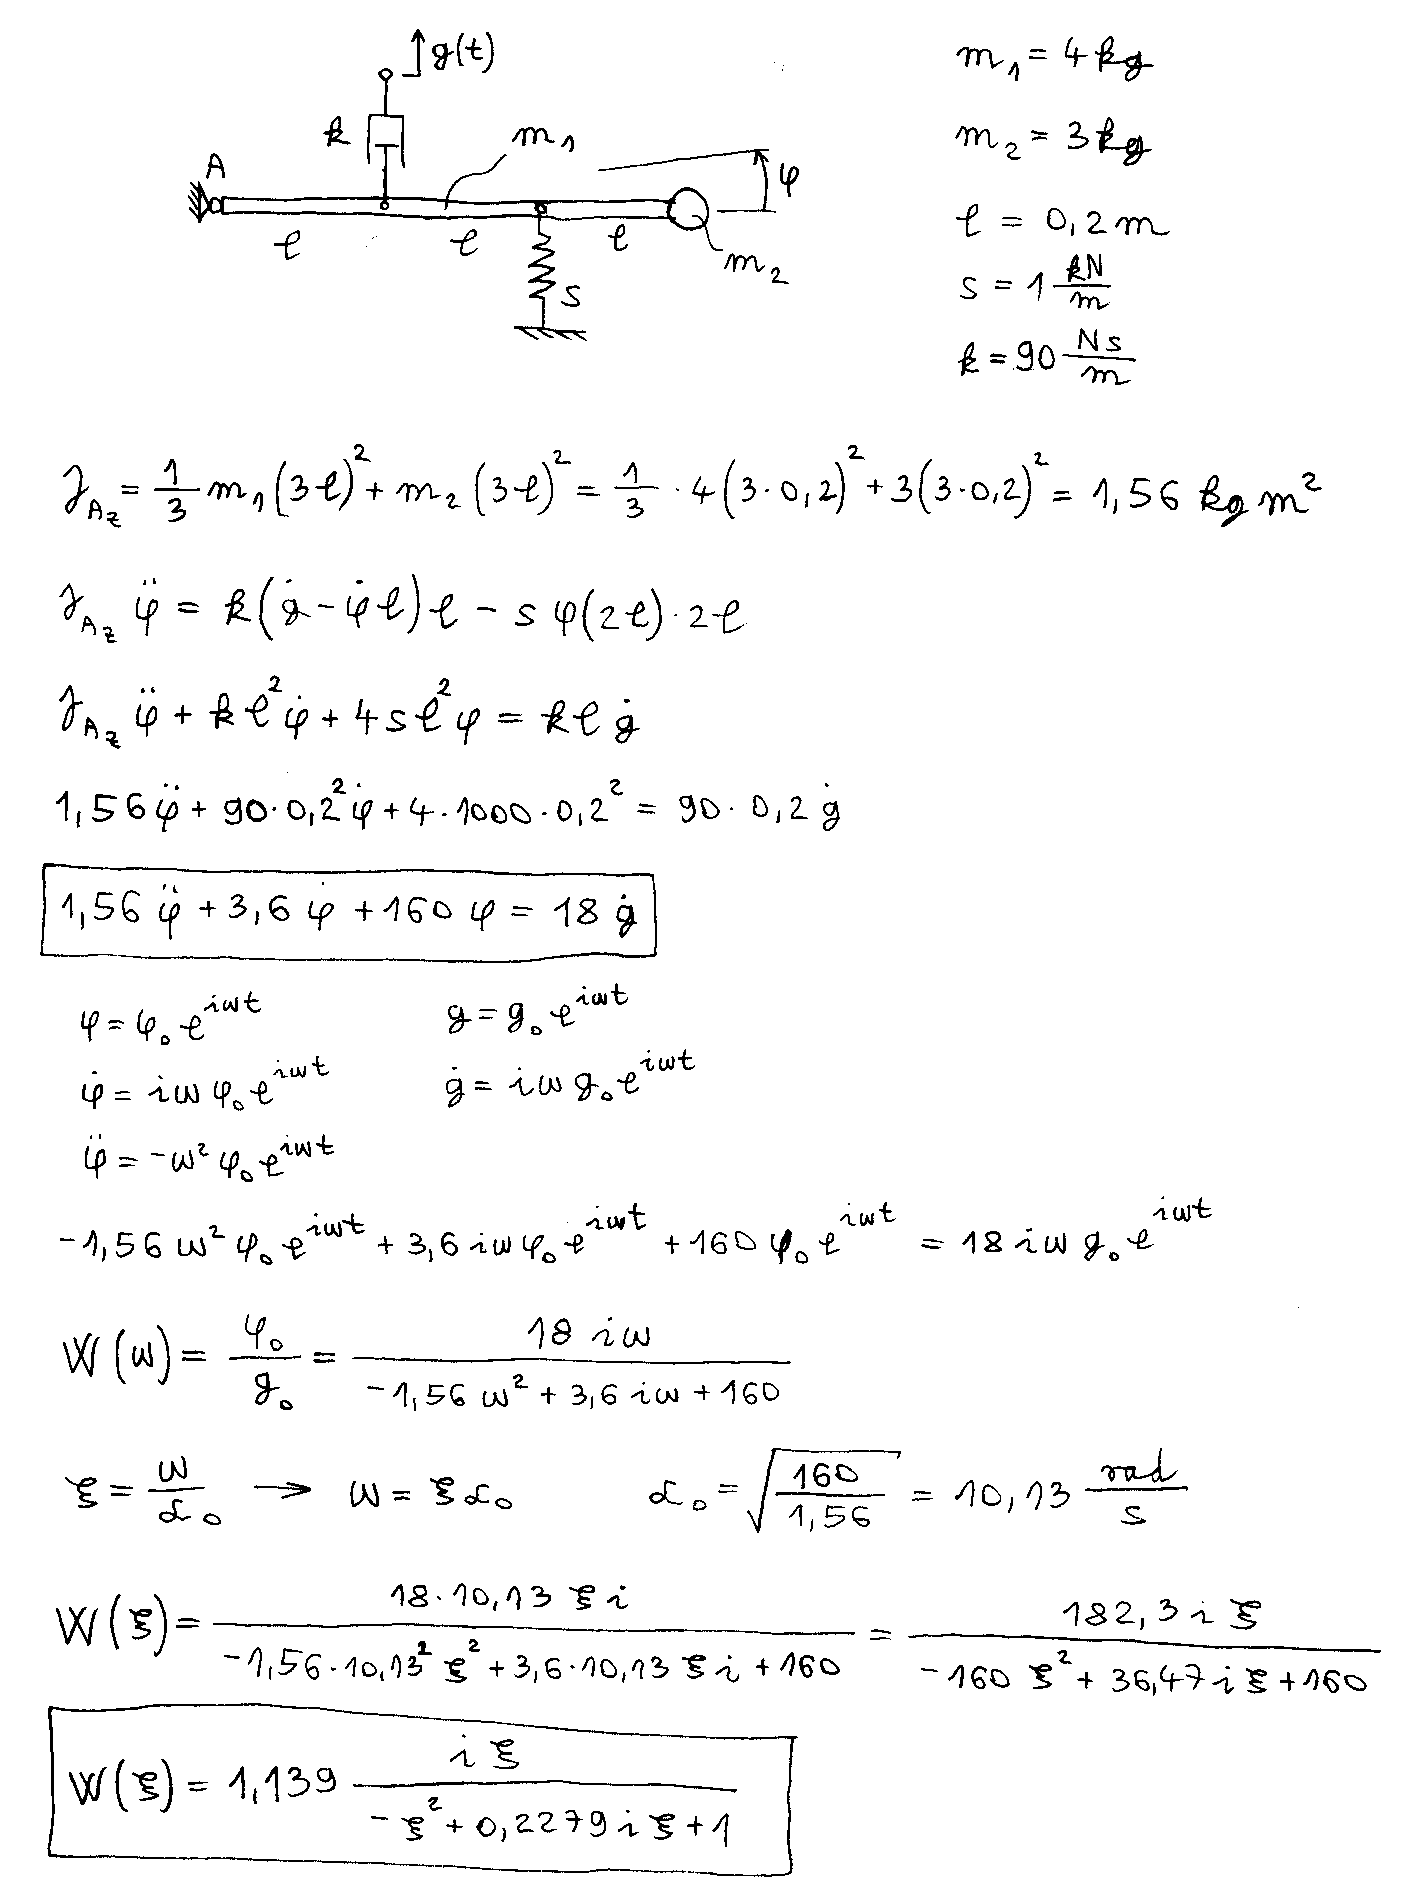 g(t)
k
m₁
A
φ
l
l
l
m₂
s
m₁ = 4 kg
m₂ = 3 kg
l = 0,2 m
s = 1 kN/m
k = 90 Ns/m
J_Az = 1/3 m₁(3l)² + m₂(3l)² = 1/3 · 4(3·0,2)² + 3(3·0,2)² = 1,56 kg m²
J_Az φ̈ = k(ġ - φ̇l)l - s φ(2l)·2l
J_Az φ̈ + kl²φ̇ + 4sl²φ = klġ
1,56φ̈ + 90·0,2²φ̇ + 4·1000·0,2² = 90·0,2ġ
1,56 φ̈ + 3,6 φ̇ + 160 φ = 18 ġ
φ = φ₀e^{iωt} g = g₀e^{iωt}
φ̇ = iωφ₀e^{iωt} ġ = iωg₀e^{iωt}
φ̈ = -ω²φ₀e^{iωt}
-1,56ω²φ₀e^{iωt} + 3,6iωφ₀e^{iωt} + 160φ₀e^{iωt} = 18iωg₀e^{iωt}
W(ω) = φ₀/g₀ = 18iω/(-1,56ω² + 3,6iω + 160)
ξ = ω/α₀ → ω = ξα₀ α₀ = √(160/1,56) = 10,13 rad/s
W(ξ) = 18·10,13ξi/(-1,56·10,13²ξ² + 3,6·10,13ξi + 160) = 182,3iξ/(-160ξ² + 36,47iξ + 160)
W(ξ) = 1,139 iξ/(-ξ² + 0,2279iξ + 1)